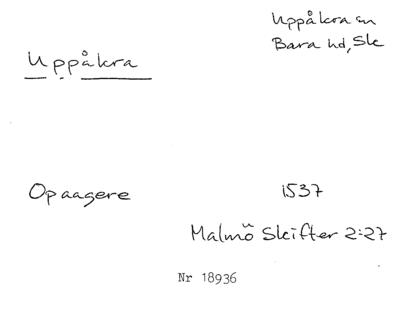 Uppåkra sn
Bara hd, Sk
Uppåkra
Opaagere 1537
Malmö Skifter 2:27
Nr 18936